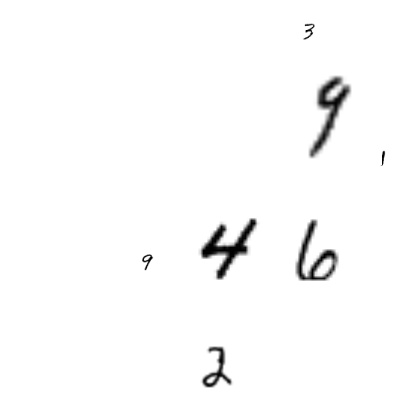 3
9
1
9 4 6
2